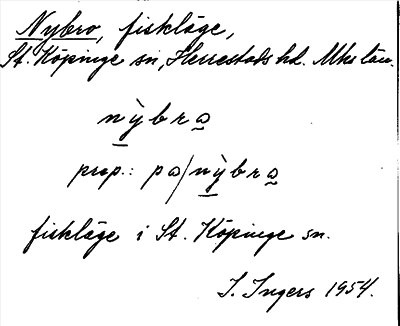 Nybro, fiskläge,
St. Köpinge sn, Herrestads hd. Mhs län.
nỳbra
prep.: pa/nỳbra
fiskläge i St. Köpinge sn.
I. Ingers 1954.